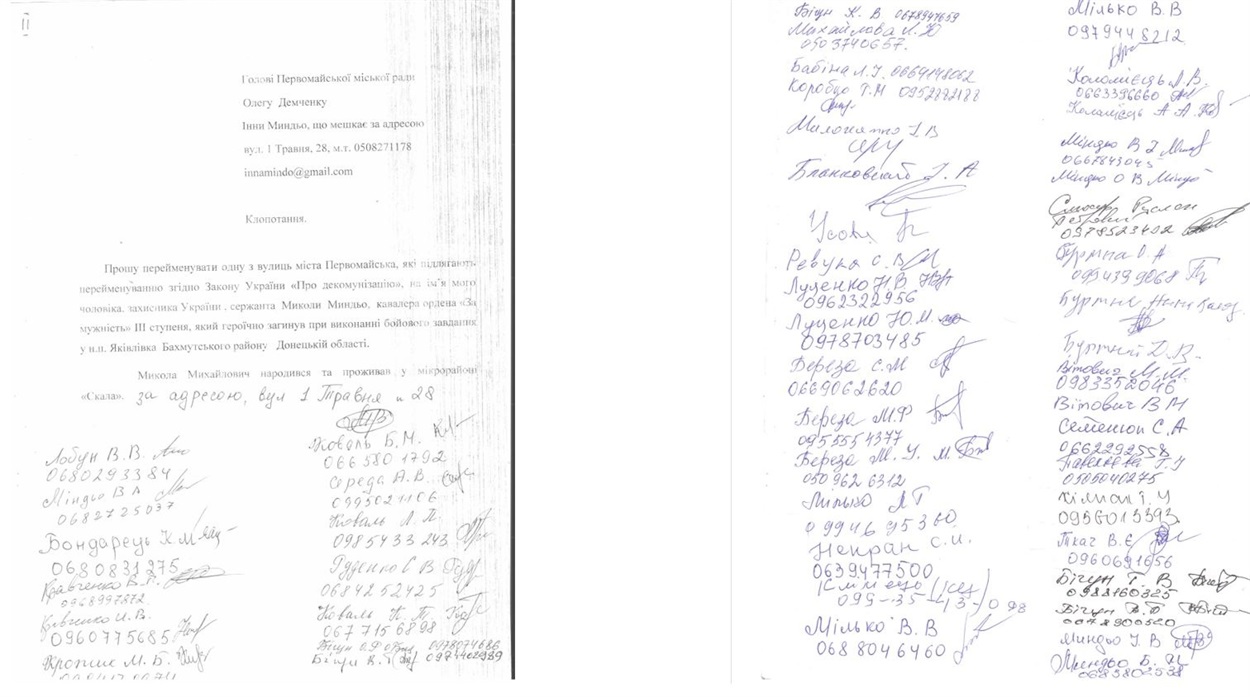 II
Голові Первомайської міської ради
Олегу Демченку
Інни Миндьо, що мешкає за адресою
вул. 1 Травня, 28, м.т. 0508271178
innamindo@gmail.com
Клопотання.
Прошу перейменувати одну з вулиць міста Первомайська, які підлягають
перейменуванню згідно Закону України «Про декомунізацію», на ім'я мого
чоловіка, захисника України, сержанта Миколи Миндьо, кавалера ордена «За
мужність» III ступеня, який героїчно загинув при виконанні бойового завдання
у н.п. Яківлівка Бахмутського району Донецькій області.
Микола Михайлович народився та проживав у мікрорайоні
«Скала». за адресою, вул 1 Травня 28
Лобун В.В.
0680293384
Міндьо В А
0682725037
Бондарець К М
0680831275
Кравченко В.Г.
0968997872
Кравченко И.В.
0960775685
Кропив М. Б.
Коваль Б.М.
066 580 1792
Середа А.В.
0995021106
Коваль Л. П.
0985433 243
Гуденко С В
0684252425
Коваль К. Т.
067 715 6898
Бігун 0978074686
Бігун В.Т
Бігун К. В 0678947659
Махайлова Л.Ю
0503740657.
Бабіна Л.І. 0664148062
Коробцо Т.М 0952872188
Бланковский І. А
Усова
Ревука С. В
Луценко Н.В.
0962322956
Луценко Ю.М.
0978703485
Береза С.М
0669062620
Береза М.Ф
0955554377
Береза М. У. М.
050 962 6312
Липько Л Г
0994695360
Некран С.И.
0639477500
099-35-43-098
Мілько В. В
068 8046460
Мілько В. В
0979448212
Коломієць Л.В.
0663396660
Коломієць А А
Міндьо В І
0667843045
Міндьо О В Миндьо
Руслан
Петрович
0978523402
О.А
0954399068
Буртний Д.В.
Вітович М.М.
0983352046
Вітович В М
Семенюк С.А
0662292558
0505040275
Кілман І. У
0956015393
Ткач В.Є
0960691656
Бігун Т. В
0988160325
Бігун В.П
0678900520
Миндьо І. В
Миндьо Б.
0685802538